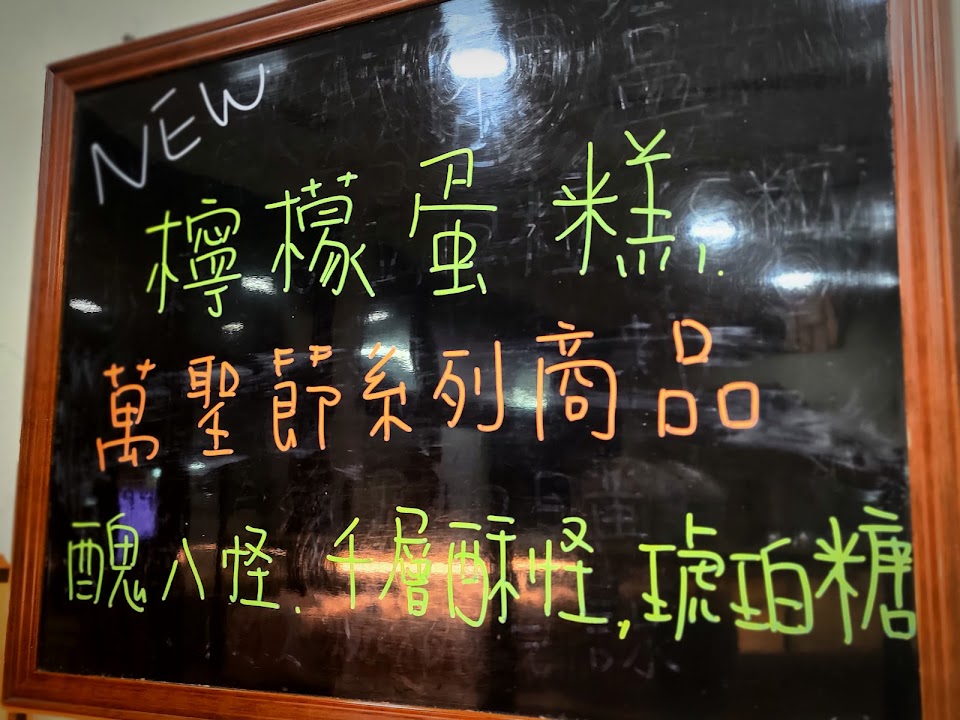 NEW
檸檬蛋糕.
萬聖節系列商品
醜八怪.千層酥怪,琥珀糖